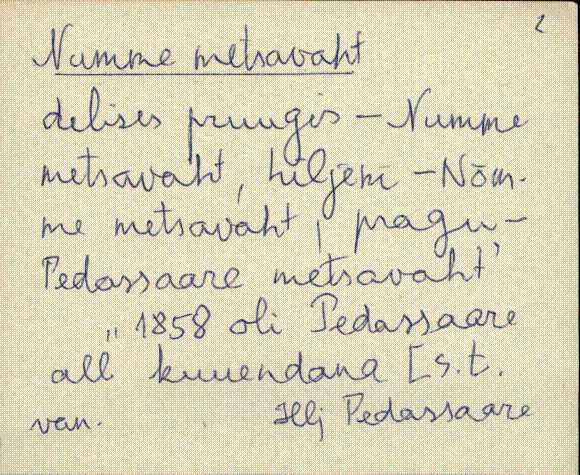 2
Numme metsavaht
delises pruugis – Numme
metsavaht, hiljem – Nõm-
me metsavaht, pragu, –
Pedassaare metsavaht
„1858 oli Pedassaare
all kuuendana [s.t.
van. Hlj Pedassaare